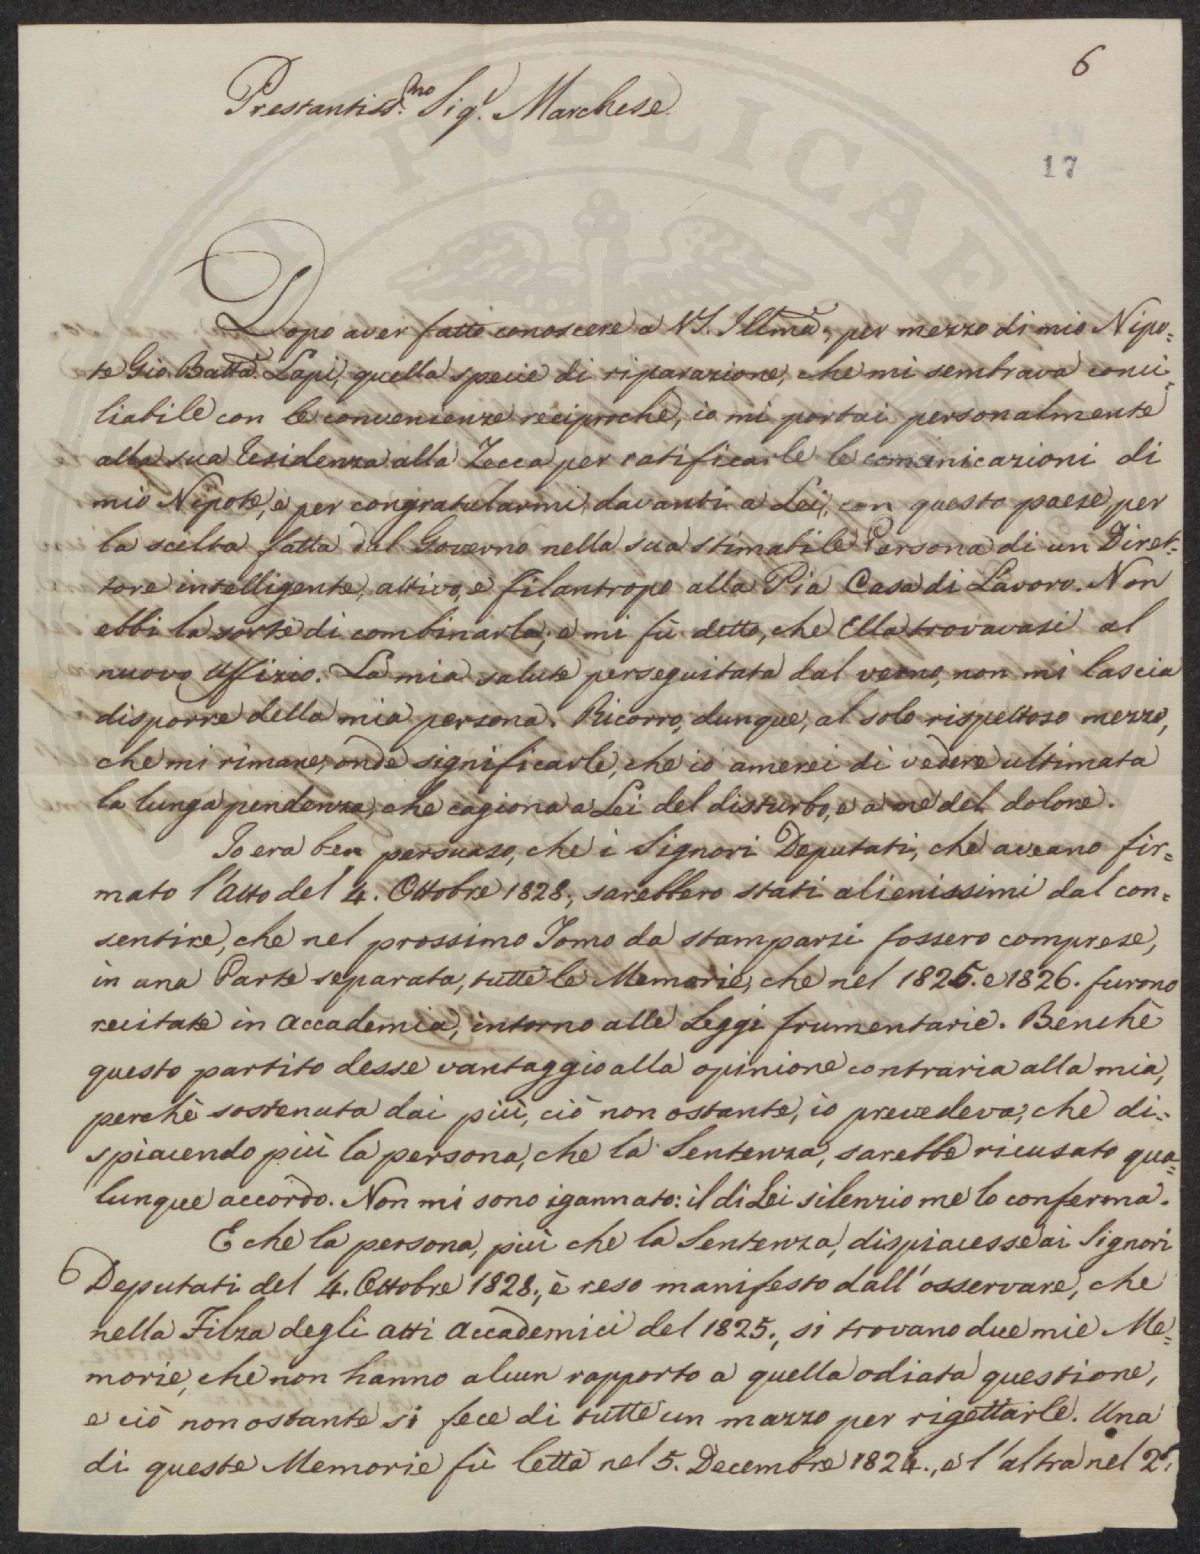 6
Prestantiss.mo Sigr. Marchese
17
Dopo aver fatto conoscere a VS. Illma., per mezzo di mio Nipo=
te Gio. Batta. Lapi, quella specie di riparazione, che mi sembrava conci=
liabile con le convenienze reciproche, io mi portai personalmente
alla sua Residenza alla Zecca per ratificarle le comunicazioni di
mio Nipote, e per congratularmi, davanti a Lei, con questo paese, per
la scelta fatta dal Governo nella sua stimabile Persona di un Diret=
tore intelligente, attivo, e filantropo alla Pia Casa di Lavoro. Non
ebbi la sorte di combinarla; e mi fù detto, che Ella trovavasi al
nuovo Uffizio. La mia salute perseguitata dal verno, non mi lascia
disporre della mia persona. Ricorro, dunque, al solo rispettoso mezzo,
che mi rimane, onde significarle, che io amerei di vedere ultimata
la lunga pendenza, che cagiona a Lei del disturbo, e a me del dolore.
Io era ben persuaso, che i Signori Deputati, che aveano fir=
mato l'Atto del 4. Ottobre 1828., sarebbero stati alienissimi dal con=
sentire, che nel prossimo Tomo da stamparsi fossero comprese,
in una Parte separata, tutte le Memorie, che nel 1825. e 1826. furono
recitate in Accademia, intorno alle Leggi frumentarie. Benchè
questo partito desse vantaggio alla opinione contraria alla mia,
perchè sostenuta dai più, ciò non ostante, io prevedeva, che di=
spiacendo più la persona, che la Sentenza, sarebbe ricusato qua=
lunque accordo. Non mi sono igannato: il di Lei silenzio me lo conferma.
E che la persona, più che la Sentenza, dispiacesse ai Signori
Deputati del 4. Ottobre 1828., è reso manifesto dall'osservare, che
nella Filza degli Atti Accademici del 1825., si trovano due mie Me=
morie, che non hanno alcun rapporto a quella odiata questione,
e ciò non ostante si fece di tutte un mazzo per rigettarle. Una
di queste Memorie fù letta nel 5. Decembre 1824., e l'altra nel 2.